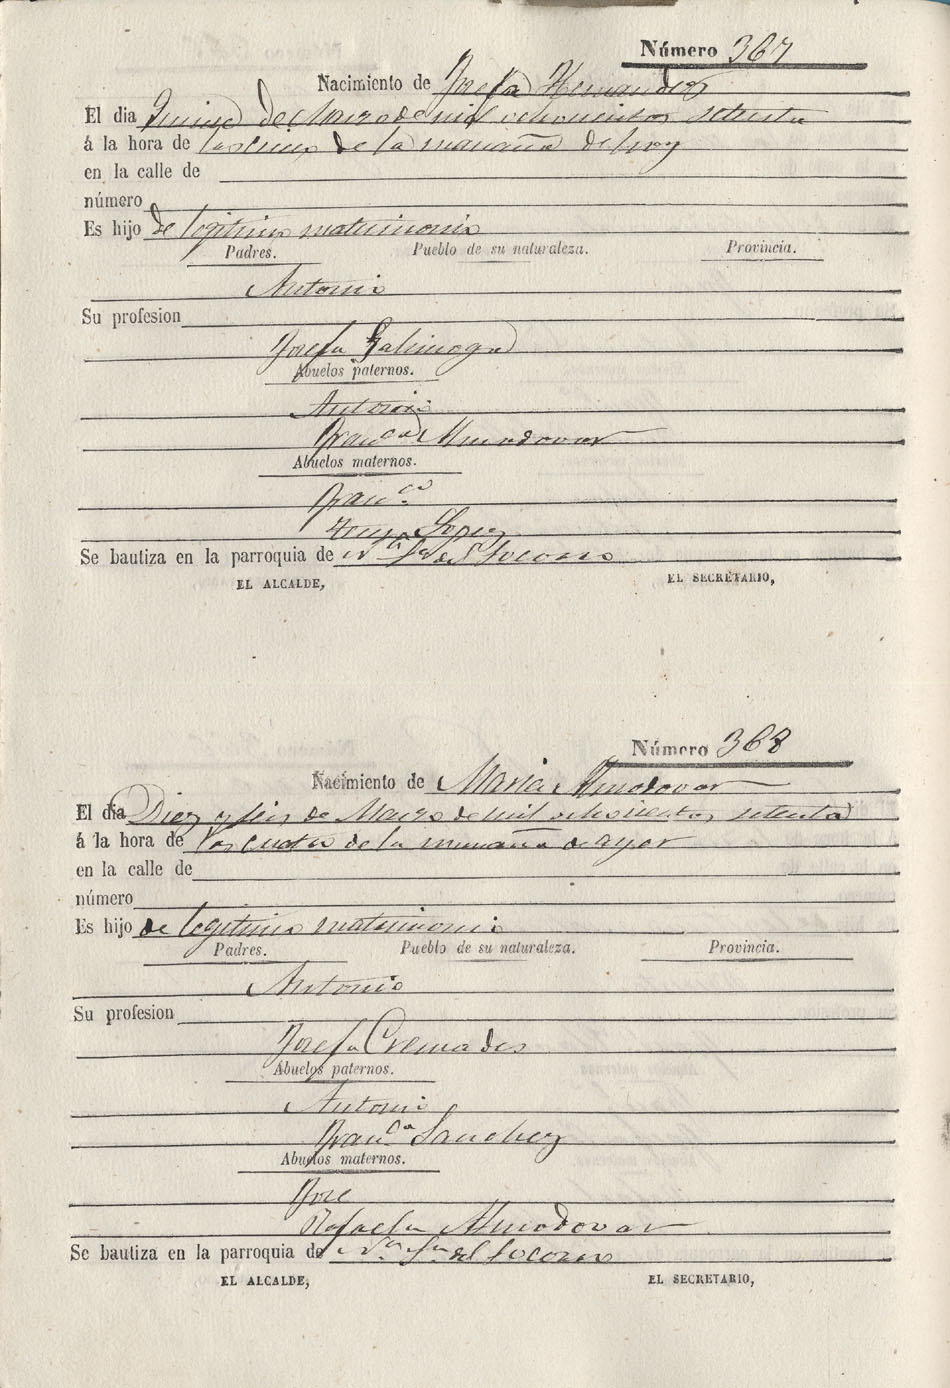 Número 367
Nacimiento de Josefa Hernandez
El dia Quince de Marzo de mil ochocientos setenta
á la hora de las cinco de la mañana de hoy
en la calle de
número
Es hijo de legitimo matrimonio
Padres. Pueblo de su naturaleza. Provincia.
Antonio
Su profesion
Josefa
Abuelos paternos.
Antonio
Franca Almodovar
Abuelos maternos.
Franco
Lopez
Se bautiza en la parroquia de Na Sa del Socorro
EL ALCALDE, EL SECRETARIO,
Número 368
Nacimiento de Maria Almodovar
El dia Diez y seis de Marzo de mil ochocientos setenta
á la hora de las cuatro de la mañana de ayer
en la calle de
número
Es hijo de legitimo matrimonio
Padres. Pueblo de su naturaleza. Provincia.
Antonio
Su profesion
Josefa Cremades
Abuelos paternos.
Antonio
Franca Sanchez
Abuelos maternos.
Jose
Rafaela Almodovar
Se bautiza en la parroquia de Na Sa del Socorro
EL ALCALDE, EL SECRETARIO,